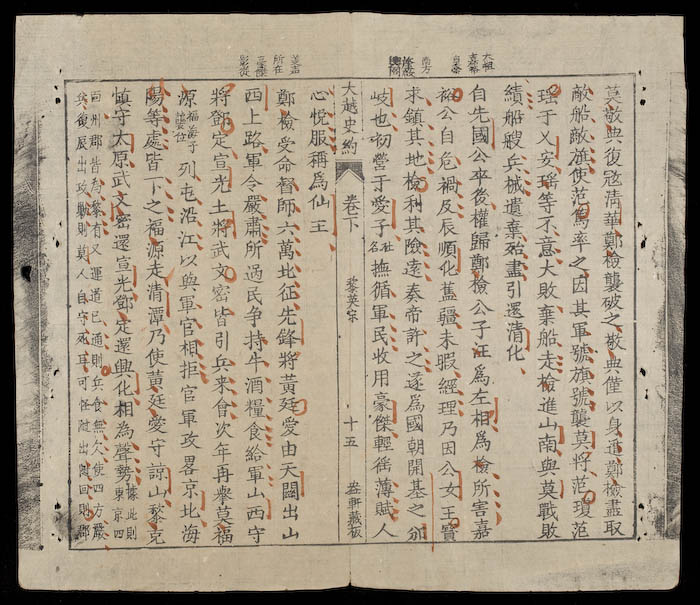 太祖
嘉裕
皇帝
南方
莫敬典復寇清華鄭檢襲破之敬典僅以身逃鄭檢盡取
敵船敵旗使范篤率之因其軍號旗號襲莫將范瓊范
瑶于乂安瑶等不意大敗棄船走檢進山南與莫戰敗
績船艘兵械遺棄殆盡引還清化
自先國公卒後權歸鄭檢公子汪爲左相爲檢所害嘉
裕公自危禍及辰順化舊疆未暇經理乃因公女王寶
求鎮其地檢利其險遠奏帝許之遂爲國朝開基之
岐也初營于愛子社名撫循軍民收用豪傑輕徭薄賦人
大越史約 卷七下 黎英宗 十五 軒藏板
所在
影從
心悅服稱爲仙王
鄭檢受命督師六萬北征先鋒將黃廷愛由天關出山
西上路軍令嚴肅所過民爭持牛酒糧食給軍山西守
將鄧定宣光土將武文密皆引兵来會次年再舉莫福
源福海子襲位列屯沿江以與軍官相拒官軍攻畧京北海
陽等處皆下之福源走清潭乃使黃廷愛守諒山黎克
慎守太原武文密還宣光鄧定還興化相為聲勢據此則東京四
面州郡皆為黎有又運道已通則兵食無欠使四方嚴
兵後辰出攻擾則莫人自守死耳可怪陡出陡回則